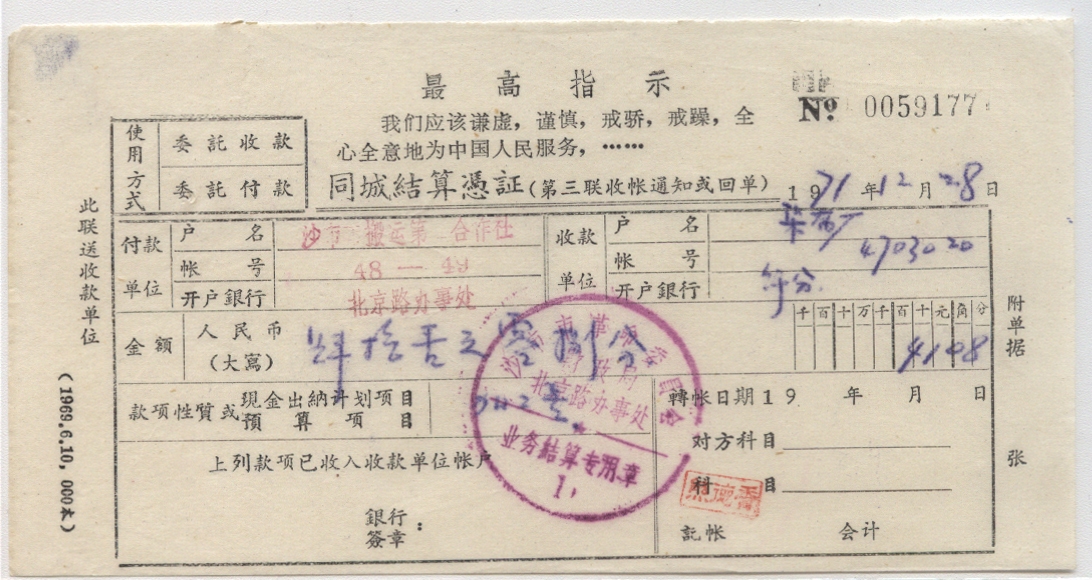 最高指示
No. 0059177
我们应该谦虚，谨慎，戒骄，戒躁，全
心全意地为中国人民服务，……
使用方式
委託收款
委託付款
同城結算憑証（第三联收帐通知或回单）
1971年12月28日
此联送收款单位
付款单位
户名
搬运第 合作社
帐号
48—49
开户銀行
北京路办事处
收款单位
户名
帐号
4703020
开户銀行
金額
人民币
（大寫）
肆拾壹元零捌分
千百十万千百十元角分
4108
附单据
张
款项性質或现金出納计划项目
预算项目
上列款项已收入收款单位帐户
銀行
簽章：
沙市市革命委员会
财政局
北京路办事处
业务结算专用章
轉帐日期19 年 月 日
对方科目
科目
記帐 会计
（1969.6.10,000本）